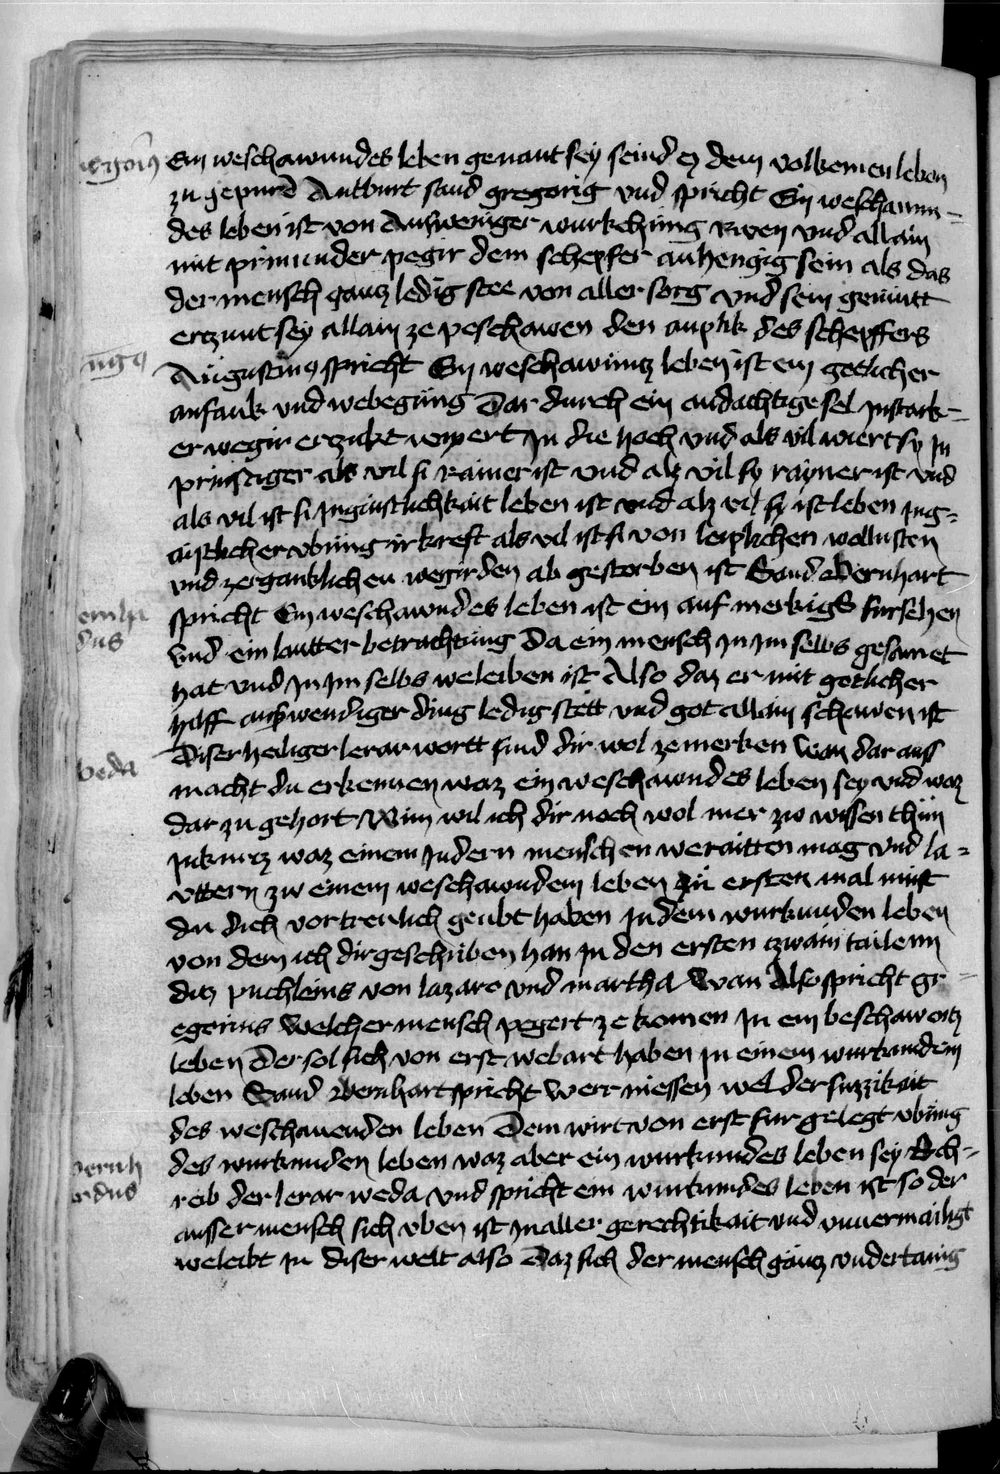 Ein weschawundes leben genant sey seind ez dem volkemen leben
zu gepurd Antburt sand gregorig vnd spricht Ein weschawun=
des leben ist von Ausweniger wurkchung rwen vnd allain
mit prinunder pegir dem schepfer anhengig sein als das
der mensch gantz ledig stee von aller sorg vnd sein gemutt
erczunt sey allain ze peschawen den anplik des schepffers
Augustinus spricht Ein weschawuntz leben ist ein gotlicher
anfank vnd webegung Dar durch ein andachtige sel In stark=
er wegir erczukt wirt In die hoch vnd als vil wiert sy In
prinstiger als vil si Rainer ist vnd alz vil sy rayner ist vnd
als vil ist si In gaistlichkait leben ist vnd alz vil sy ist leben In g=
aistlicher vbung ir kreft als vil ist si von leiplichen wollusten
vnd zerganklichen wegirden ab gestorben ist Sand Wernhart
spricht Ein weschawndes leben ist ein auf merkigs fursehen
vnd ein lautter betrachtung Da ein mensch In Im selbs gesamet
hat vnd In Im selbs weleiben ist Also daz er mit gotlicher
hilff auswendiger ding ledig stett vnd got allain schawen ist
Diser heiliger lerar wortt sind dir wol ze merken Wan dar auss
macht du erkennen waz ein weschawndes leben sey vnd waz
dar zu gehort Nun wil ich dir noch wol mer zw wissen thun
In kurtz waz einem Indern menschen weraitten mag vnd la=
uttern zw einem weschawndem leben zu ersten mal must
du dich vor treulich geubt haben In dem wurkunden leben
von dem ich dir geschriben han In den ersten czwain tailenn
ditz puchleins von lazaro vnd martha Wan Also spricht gr=
egorius Welcher mensch pegert ze komen In ein beschawentz
leben Der sol sich von erst webart haben In einem wurkundem
leben Sand Wernhart spricht Werr niessen wel der suzzikait
des weschauenden leben Dem wirt von erst fur gelegt vbung
des wurkunden leben waz aber ein wurkundes leben sey Sch=
reib der lerar weda vnd spricht ein wurkundes leben ist so der
ausser mensch sich vben ist In aller gerechtikait vnd vnuermailigt
weleibt In diser welt also Daz sich der mensch gantz vndertanig
beda